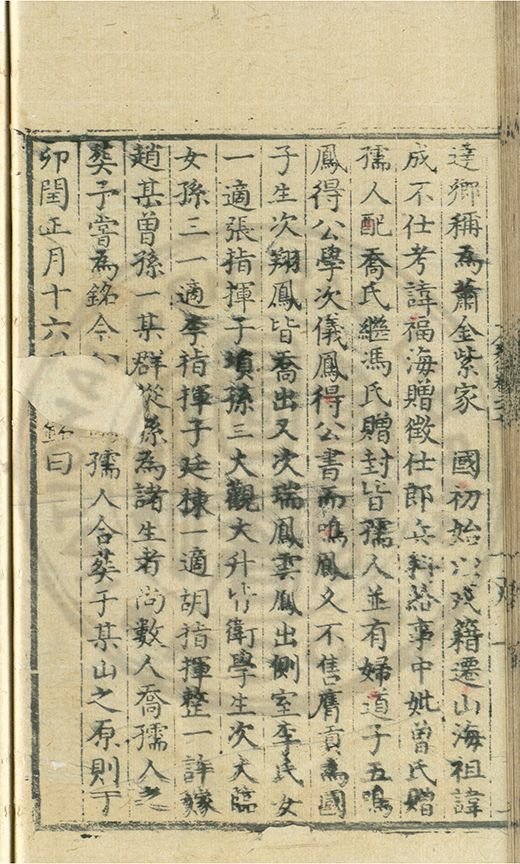 達鄉稱為蕭金紫家　國初始以戎籍遷山海祖諱
成不仕考諱福海贈徵仕郎兵科給事中妣曾氏贈
孺人配喬氏繼馮氏贈封皆孺人並有婦道子五鳴
鳳得公學次儀鳳得公書而鳴鳳久不售膺貢為國
子生次翔鳳皆喬出又次瑞鳳雲鳳出側室李氏女
一適張指揮子瑱孫三大觀大升皆衛學生次大臨
女孫三一適李指揮子廷棟一適胡指揮整一許嫁
趙某曾孫一某群從孫為諸生者尚數人喬孺人之
葬予嘗為銘今孺人合葬于某山之原則丁
卯閏正月十六銘曰